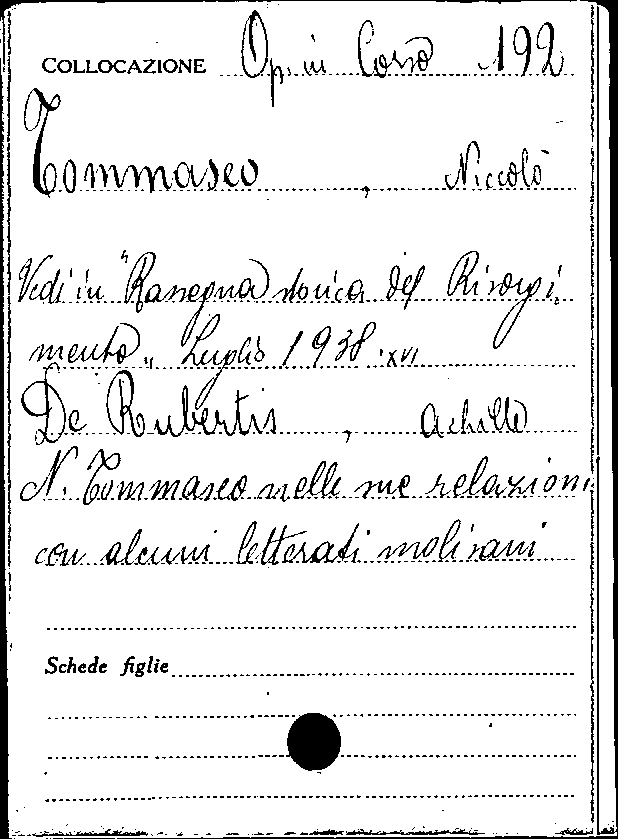 COLLOCAZIONE Op. in Corso 192
Tommaseo, Niccolò
Vedi in "Rassegna storica del Risorgi.
mento„ Luglio 1938.XVI
De Rubertis, Achille
N. Tommaseo nelle sue relazioni
con alcuni letterati molisani
Schede figlie